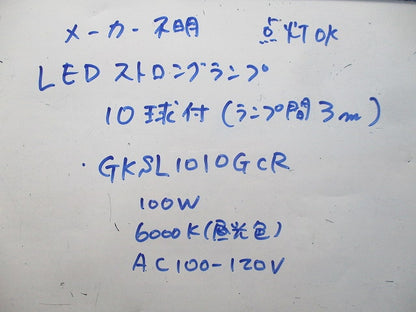 メーカー不明 点灯OK
LEDストロングランプ
10球付(ランプ間3m)
・GKSL1010GCR
100W
6000K(昼光色)
AC100-120V